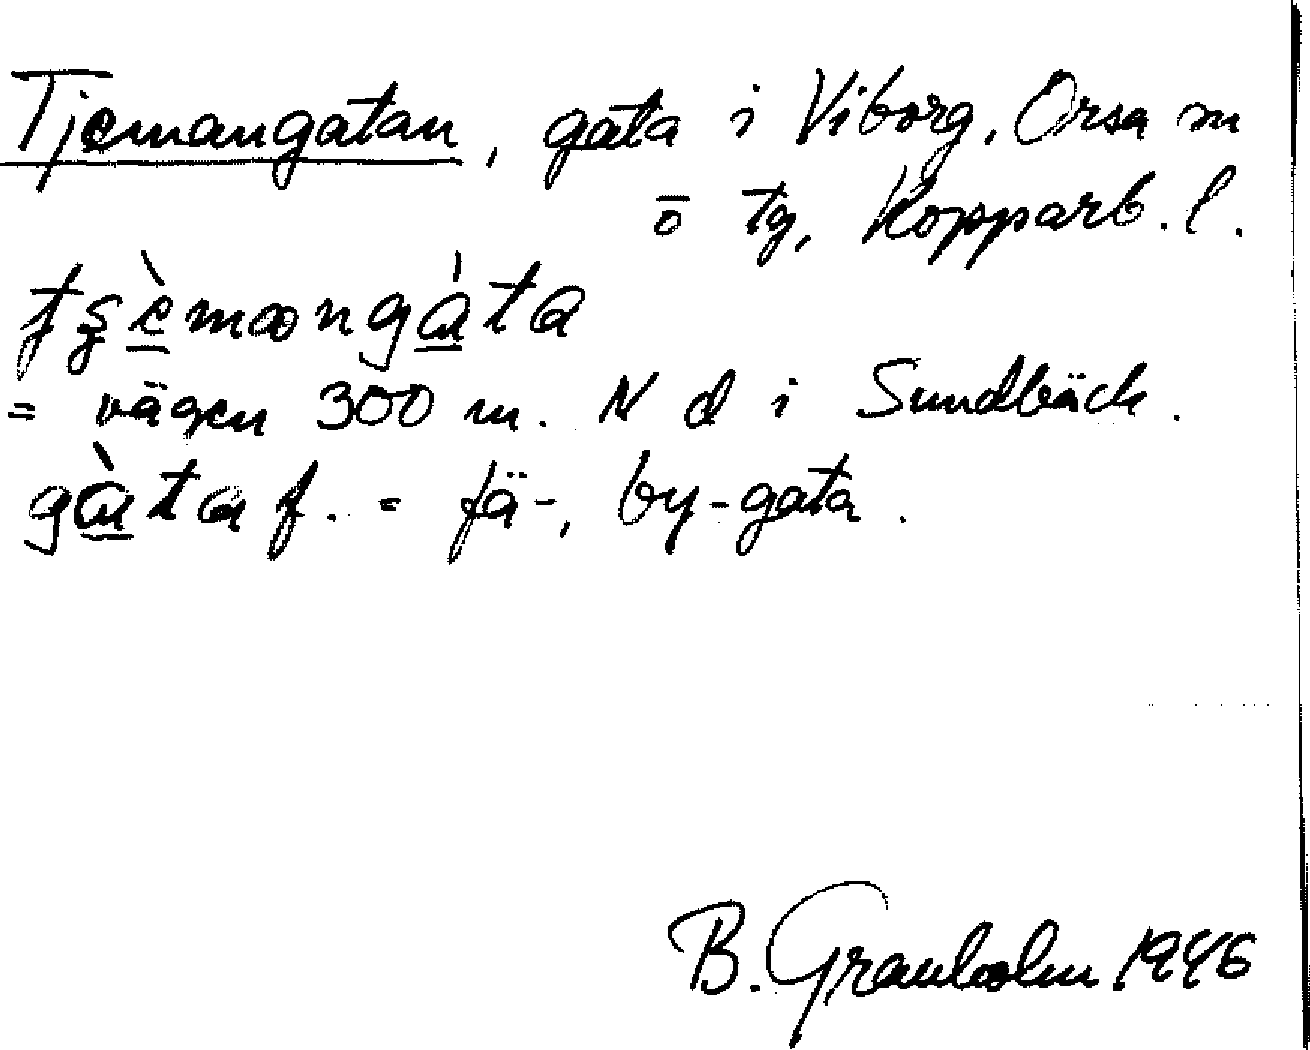 Tjemangatan, gata i Viborg, Orsa sn
o tg, Kopparb. l.
= vägen 300 m. N d i Sundbäck.
gàta f. = fä-, by-gata.
B. Granholm 1946